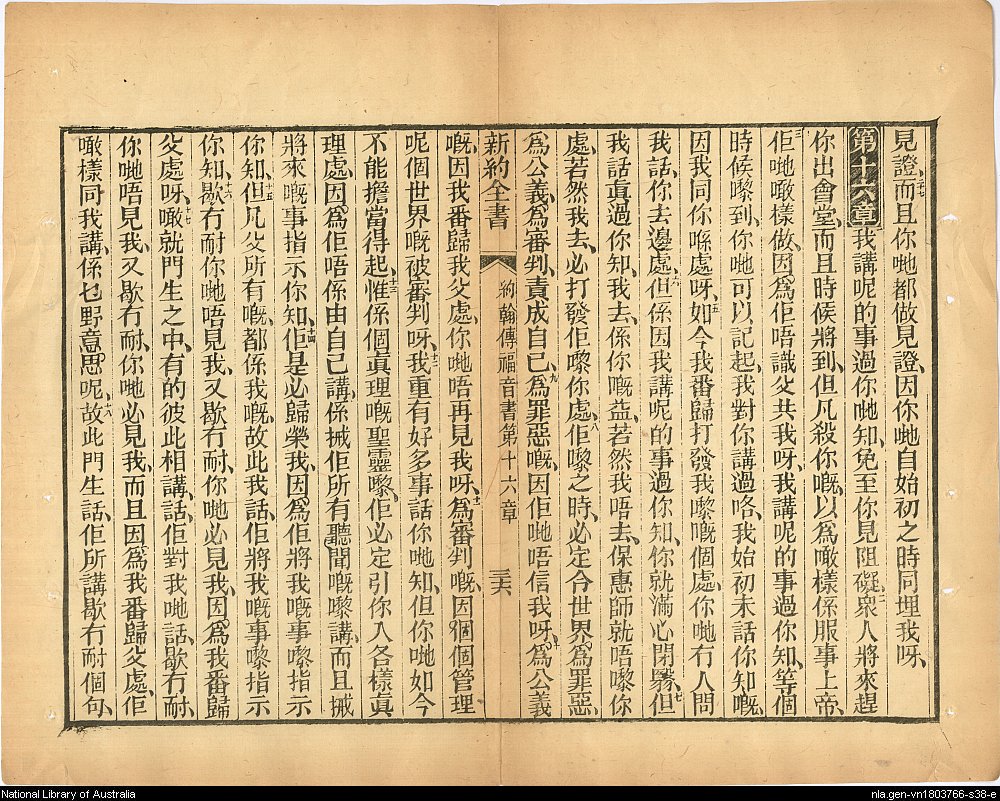 見證而且你哋都做見證因你哋自始初之時同埋我呀
第十六章我講呢的事過你哋知免至你見阻礙衆人將來趕
你出會堂而且時候將到但凡殺你嘅以爲噉樣係服事上帝
佢哋噉樣做因爲佢唔識父共我呀我講呢的事過你知等個
時候嚟到你哋可以記起我對你講過咯我始初未話你知嘅
因我同你喺處呀如今我番歸打發我嚟嘅個處你哋冇人問
我話你去邊處但係因我講呢的事過你知你就滿心閉翳但
我話眞過你知我去係你嘅益若然我唔去保惠師就唔嚟你
處若然我去必打發佢嚟你處佢嚟之時必定令世界爲罪惡
爲公義爲審判責成自己爲罪惡嘅因佢哋唔信我呀爲公義
嘅因我番歸我父處你哋唔再見我呀爲審判嘅因個個管理
新約全書 約翰傳福音書第十六章 三六
呢個世界嘅被審判呀我重有好多事話你哋知但你哋如今
不能擔當得起惟係個眞理嘅聖靈嚟佢必定引你入各樣眞
理處因爲佢唔係由自己講係搣佢所有聽聞嘅嚟講而且搣
將來嘅事指示你知佢是必歸榮我因爲佢將我嘅事嚟指示
你知但凡父所有嘅都係我嘅故此我話佢將我嘅事嚟指示
你知歇冇耐你哋唔見我又歇冇耐你哋必見我因爲我番歸
父處呀噉就門生之中有的彼此相講話佢對我哋話歇冇耐
你哋唔見我又歇冇耐你哋必見我而且因爲我番歸父處佢
噉樣同我講係乜野意思呢故此門生話佢所講歇冇耐個句
National Library of Australia
nla.gen-vn1803766-s38-e